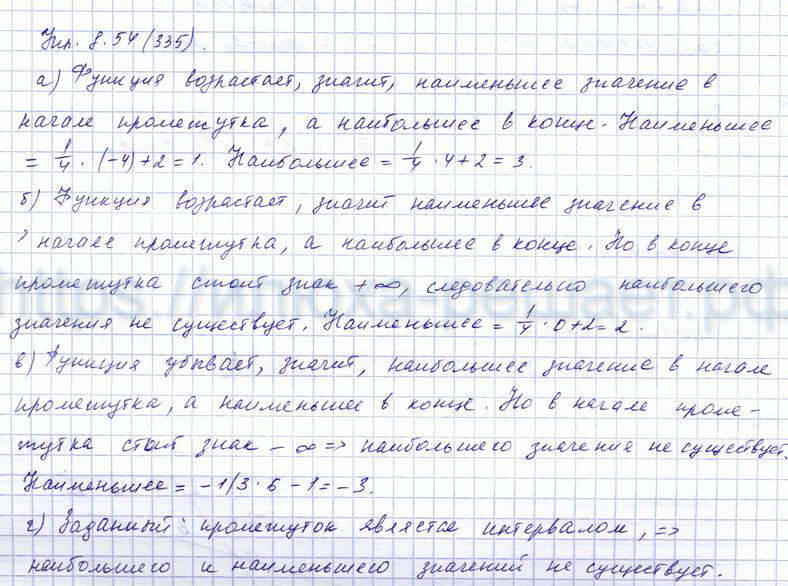 Упр. 8.54 (335).
а) Функция возрастает, значит, наименьшее значение в
начале промежутка, а наибольшее в конце. Наименьшее
= 1/4 · (-4)+2 = 1. Наибольшее = 1/4 · 4+2 = 3.
б) Функция возрастает, значит наименьшее значение в
начале промежутка, а наибольшее в конце. Но в конце
промежутка стоит знак +∞, следовательно наибольшего
значения не существует. Наименьшее = 1/4 · 0+2=2.
в) Функция убывает, значит, наибольшее значение в начале
промежутка, а наименьшее в конце. Но в начале проме-
жутка стоит знак -∞ => наибольшего значения не существует.
Наименьшее = -1/3 · 6 - 1 = -3.
г) Заданный промежуток является интервалом, =>
наибольшего и наименьшего значений не существует.